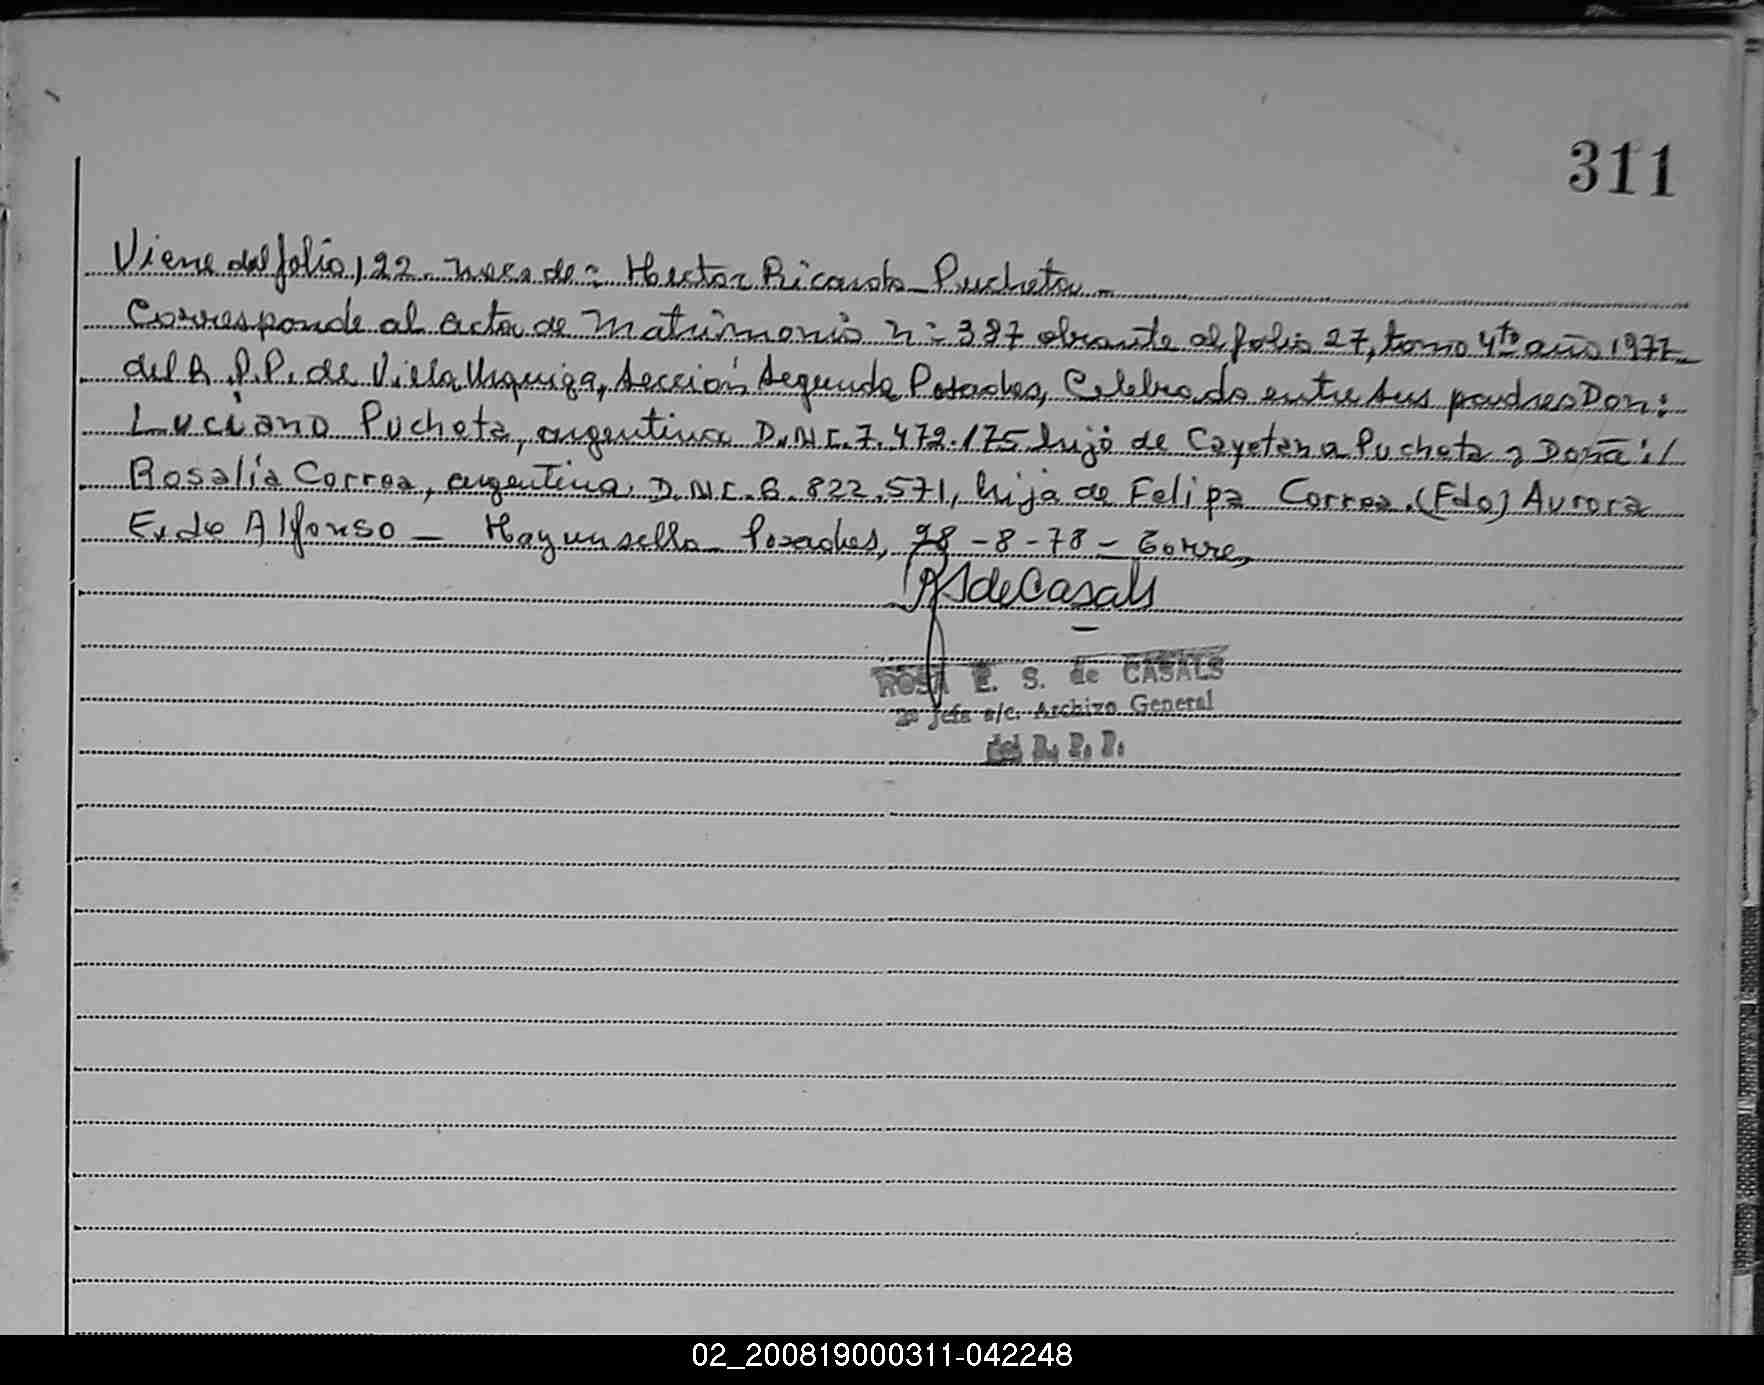 311
Viene del folio 122. naca de: Hector Ricardo Pucheta -
Corresponde al acta de Matrimonio n: 387 obrante al folio 27, tomo 4to año 1977
del R.P.P. de Villa Urquiza, Sección Segunda Posadas, Celebrado entre sus padres Don:
Luciano Pucheta, argentino D.N.I. 7.472.175 hijo de Cayetana Pucheta y Doña:/
Rosalía Correa, argentina. D.N.I. 6.822.571, hija de Felipa Correa. (Fdo) Aurora
E. de Alfonso - Hay un sello - Posadas, 28-8-78 - Corre,
RSdeCasals
ROSA E. S. de CASALS
2a Jefa a/c. Archivo General
del R. P. P.
02_200819000311-042248